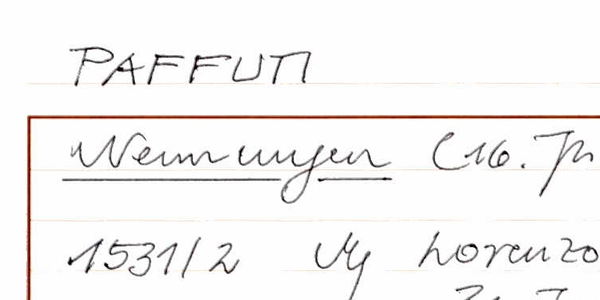 PAFFUTI
Nennungen (16. Jh
1531/2 Vg Lorenzo